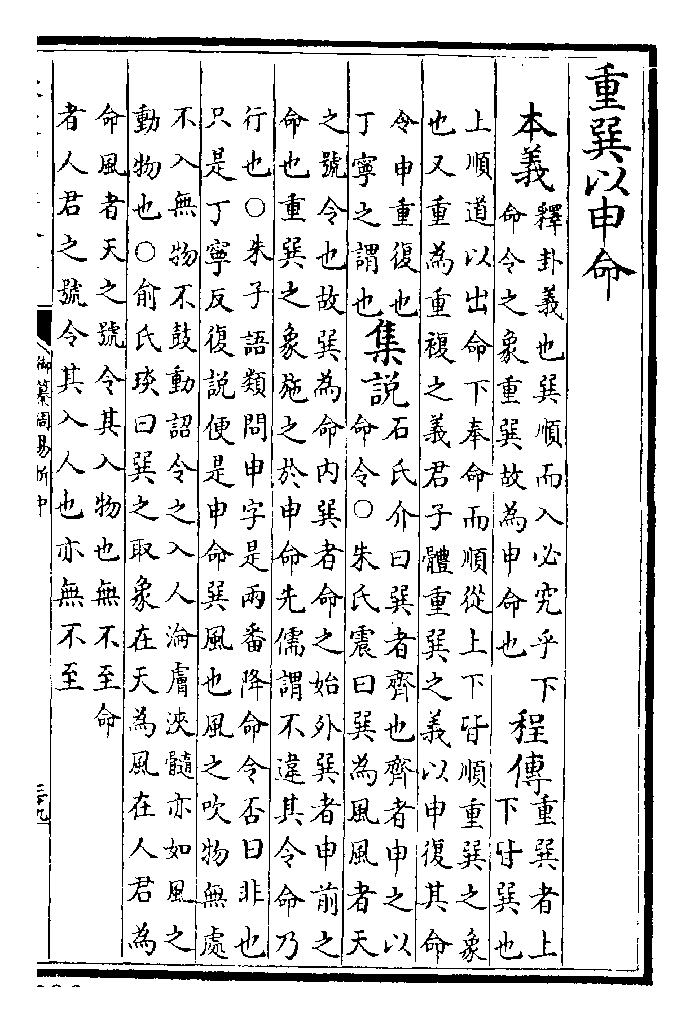 重巽以申命
本義
釋卦義也巽順而入必究乎下
命令之象重巽故為申命也
程傳
重巽者上
下皆巽也
上順道以出命下奉命而順從上下皆順重巽之象
也又重為重複之義君子體重巽之義以申復其命
令申重復也
丁寧之謂也
集說
石氏介曰巽者齊也齊者申之以
命令○朱氏震曰巽為風風者天
之號令也故巽為命内巽者命之始外巽者申前之
命也重巽之象施之於申命先儒謂不違其令命乃
行也○朱子語類問申字是兩番降命令否曰非也
只是丁寧反復說便是申命巽風也風之吹物無處
不入無物不鼓動詔令之入人淪膚浹髓亦如風之
動物也○俞氏琰曰巽之取象在天為風在人君為
命風者天之號令其入物也無不至命
者人君之號令其入人也亦無不至
御纂周易折中